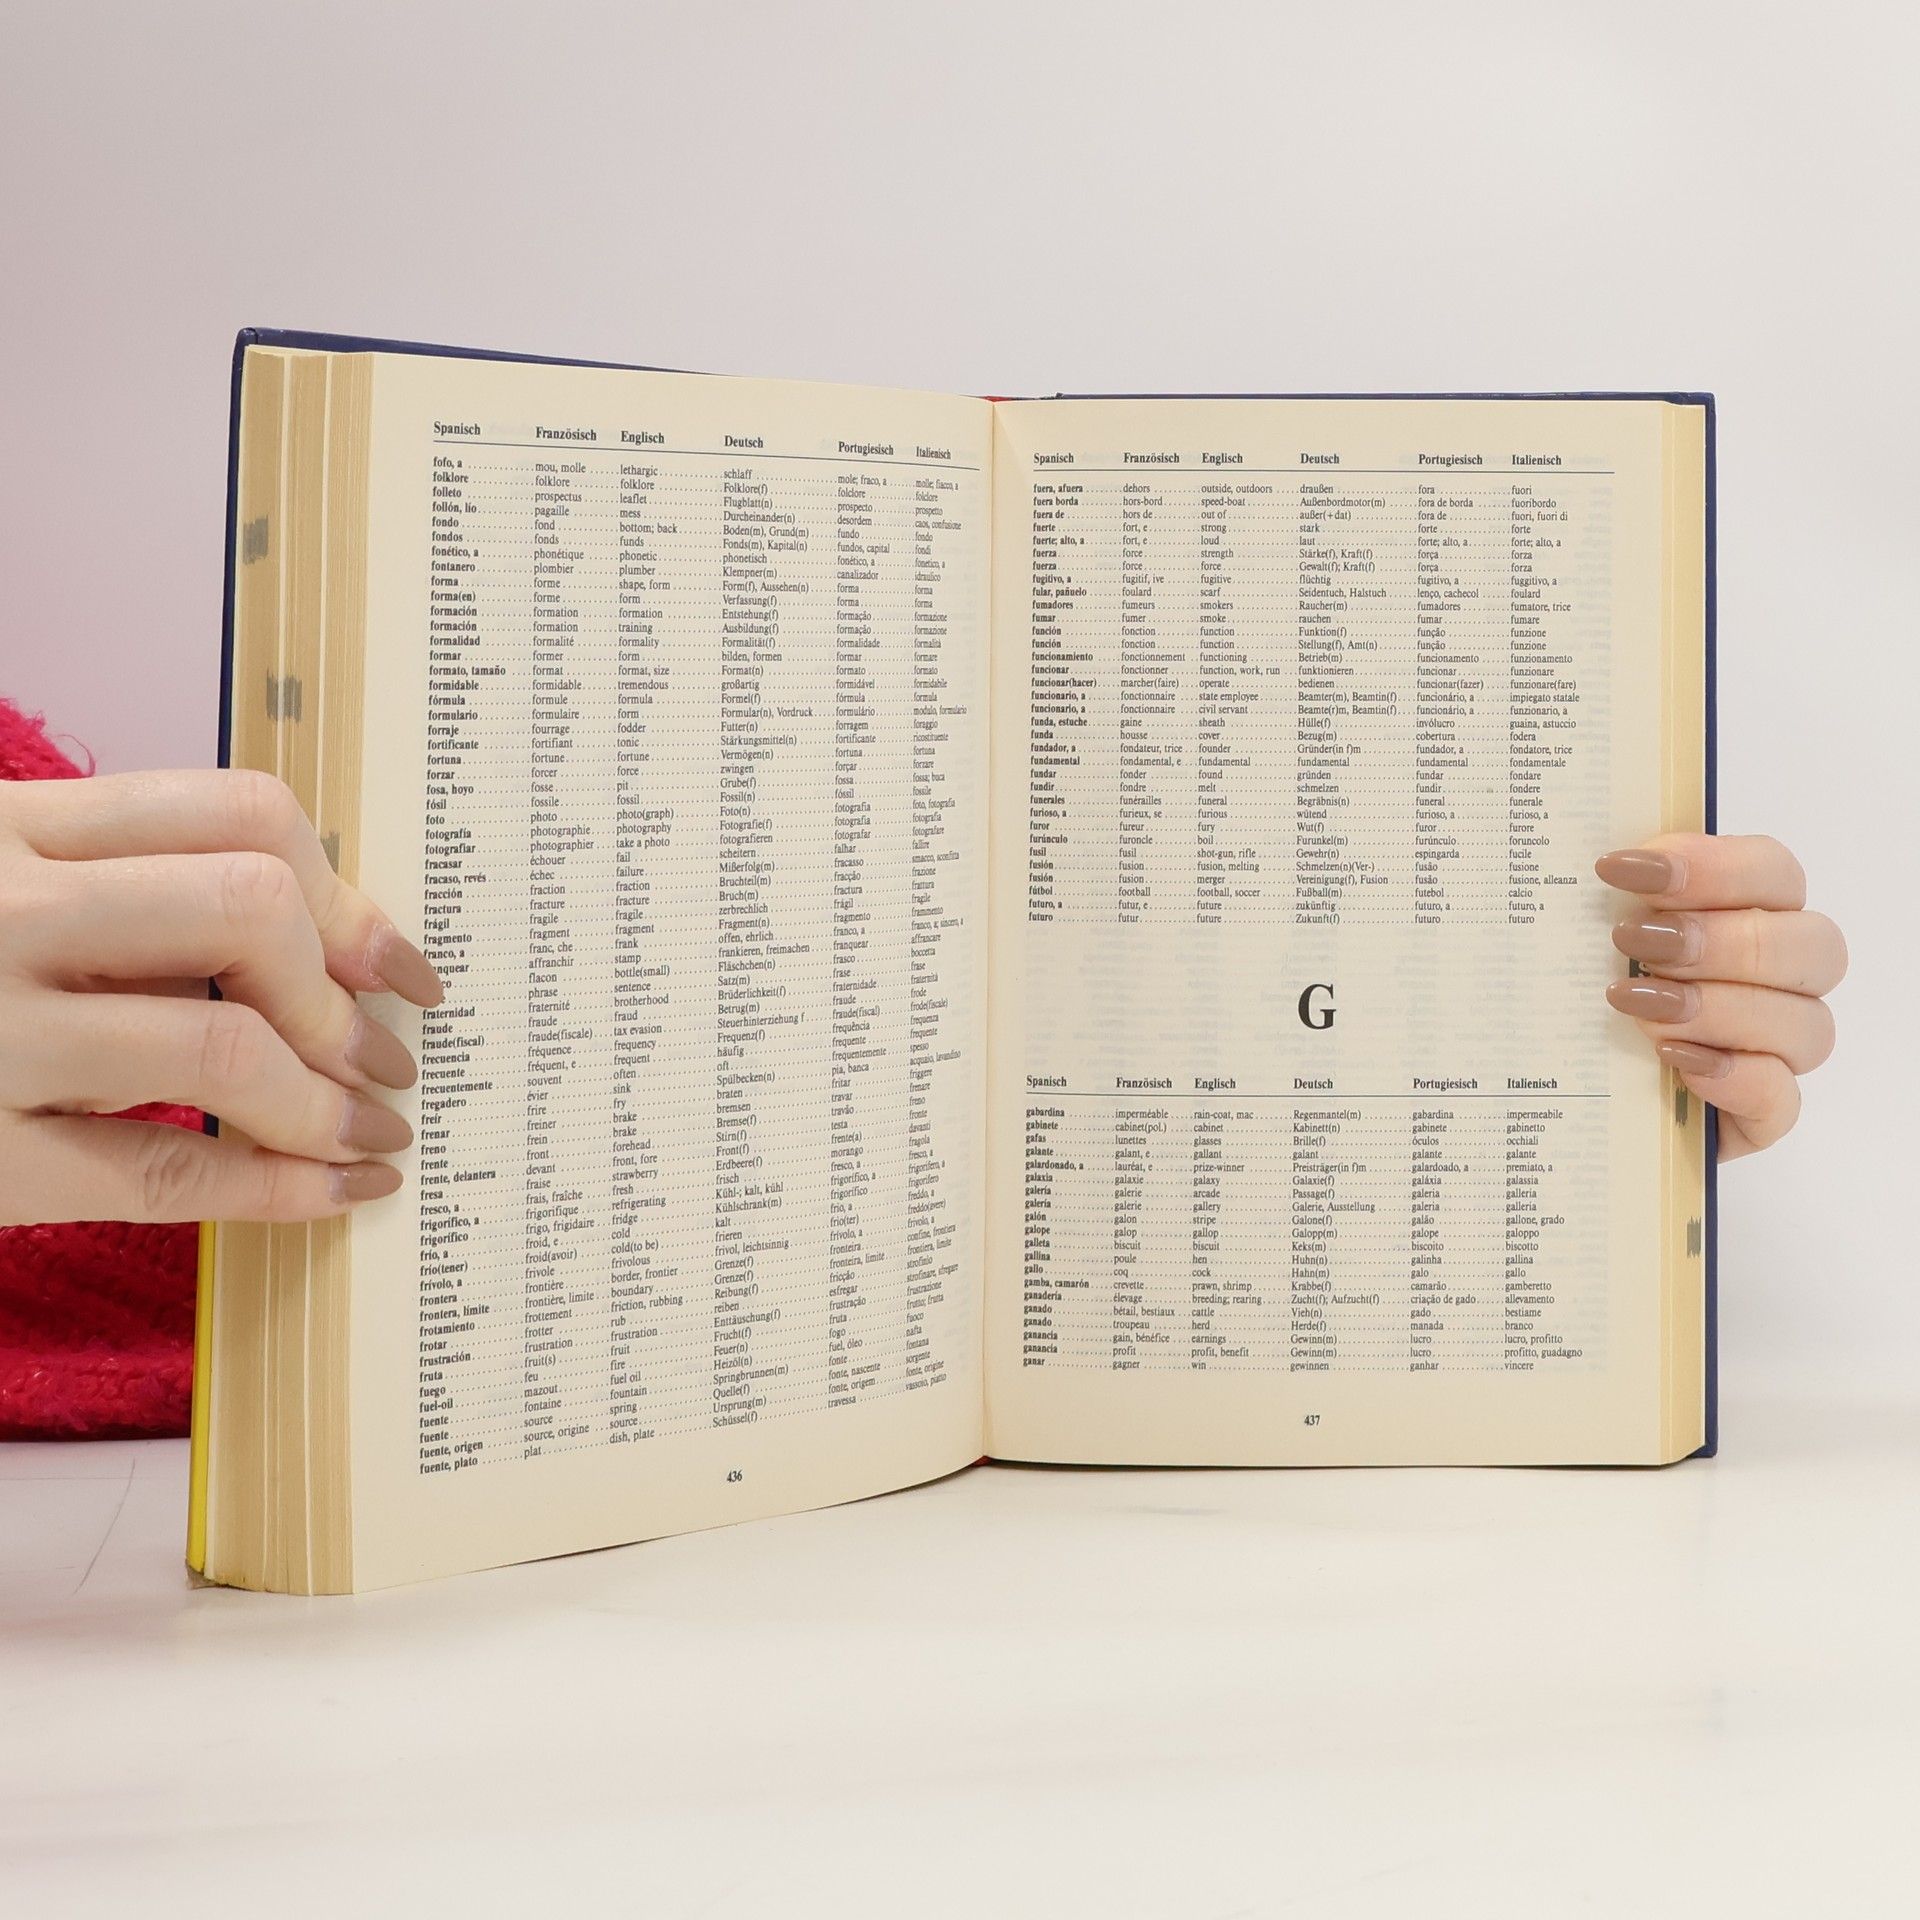 Spanisch Französisch Englisch Deutsch Portugiesisch Italienisch
fofo, a ..... mou, molle ..... lethargic ..... schlaff ..... mole; fraco, a ..... molle; fiacco, a
folklore ..... folklore ..... folklore ..... Folklore(f) ..... folclore ..... folclore
folleto ..... prospectus ..... leaflet ..... Flugblatt(n) ..... prospecto ..... prospetto
follón, lío ..... pagaille ..... mess ..... Durcheinander(n) ..... desordem ..... caos, confusione
fondo ..... fond ..... bottom; back ..... Boden(m), Grund(m) ..... fundo ..... fondo
fondos ..... fonds ..... funds ..... Fonds(m), Kapital(n) ..... fundos, capital ..... fondi
fonético, a ..... phonétique ..... phonetic ..... phonetisch ..... fonético, a ..... fonetico, a
fontanero ..... plombier ..... plumber ..... Klempner(m) ..... canalizador ..... idraulico
forma ..... forme ..... shape, form ..... Form(f), Aussehen(n) ..... forma ..... forma
forma(en) ..... forme ..... form ..... Verfassung(f) ..... forma ..... forma
formación ..... formation ..... formation ..... Entstehung(f) ..... formação ..... formazione
formación ..... formation ..... training ..... Ausbildung(f) ..... formação ..... formazione
formalidad ..... formalité ..... formality ..... Formalität(f) ..... formalidade ..... formalità
formar ..... former ..... form ..... bilden, formen ..... formar ..... formare
formato, tamaño ..... format ..... format, size ..... Format(n) ..... formato ..... formato
formidable ..... formidable ..... tremendous ..... großartig ..... formidável ..... formidabile
fórmula ..... formule ..... formula ..... Formel(f) ..... fórmula ..... formula
formulario ..... formulaire ..... form ..... Formular(n), Vordruck ..... formulário ..... modulo, formulario
forraje ..... fourrage ..... fodder ..... Futter(n) ..... forragem ..... foraggio
fortificante ..... fortifiant ..... tonic ..... Stärkungsmittel(n) ..... fortificante ..... ricostituente
fortuna ..... fortune ..... fortune ..... Vermögen(n) ..... fortuna ..... fortuna
forzar ..... forcer ..... force ..... zwingen ..... forçar ..... forzare
fosa, hoyo ..... fosse ..... pit ..... Grube(f) ..... fossa ..... fossa; buca
fósil ..... fossile ..... fossil ..... Fossil(n) ..... fóssil ..... fossile
foto ..... photo ..... photo(graph) ..... Foto(n) ..... fotografia ..... foto, fotografia
fotografía ..... photographie ..... photography ..... Fotografie(f) ..... fotografia ..... fotografia
fotografiar ..... photographier ..... take a photo ..... fotografieren ..... fotografar ..... fotografare
fracasar ..... échouer ..... fail ..... scheitern ..... falhar ..... fallire
fracaso, revés ..... échec ..... failure ..... Mißerfolg(m) ..... fracasso ..... smacco, sconfitta
fracción ..... fraction ..... fraction ..... Bruchteil(m) ..... fracção ..... frazione
fractura ..... fracture ..... fracture ..... Bruch(m) ..... fractura ..... frattura
frágil ..... fragile ..... fragile ..... zerbrechlich ..... frágil ..... fragile
fragmento ..... fragment ..... fragment ..... Fragment(n) ..... fragmento ..... frammento
franco, a ..... franc, che ..... frank ..... offen, ehrlich ..... franco, a ..... franco, a; sincero, a
nquear ..... affranchir ..... stamp ..... frankieren, freimachen ..... franquear ..... affrancare
co ..... flacon ..... bottle(small) ..... Fläschchen(n) ..... frasco ..... boccetta
e ..... phrase ..... sentence ..... Satz(m) ..... frase ..... frase
fraternidad ..... fraternité ..... brotherhood ..... Brüderlichkeit(f) ..... fraternidade ..... fraternità
fraude ..... fraude ..... fraud ..... Betrug(m) ..... fraude ..... frode
fraude(fiscal) ..... fraude(fiscale) ..... tax evasion ..... Steuerhinterziehung f ..... fraude(fiscal) ..... frode(fiscale)
frecuencia ..... fréquence ..... frequency ..... Frequenz(f) ..... frequência ..... frequenza
frecuente ..... fréquent, e ..... frequent ..... häufig ..... frequente ..... frequente
frecuentemente ..... souvent ..... often ..... oft ..... frequentemente ..... spesso
fregadero ..... évier ..... sink ..... Spülbecken(n) ..... pia, banca ..... acquaio, lavandino
freír ..... frire ..... fry ..... braten ..... fritar ..... friggere
frenar ..... freiner ..... brake ..... bremsen ..... travar ..... frenare
freno ..... frein ..... brake ..... Bremse(f) ..... travão ..... freno
frente ..... front ..... forehead ..... Stirn(f) ..... testa ..... fronte
frente, delantera ..... devant ..... front, fore ..... Front(f) ..... frente(a) ..... davanti
fresa ..... fraise ..... strawberry ..... Erdbeere(f) ..... morango ..... fragola
fresco, a ..... frais, fraîche ..... fresh ..... frisch ..... fresco, a ..... fresco, a
frigorífico, a ..... frigorifique ..... refrigerating ..... Kühl-; kalt, kühl ..... frigorífico, a ..... frigorifero, a
frigorífico ..... frigo, frigidaire ..... fridge ..... Kühlschrank(m) ..... frigorífico ..... frigorifero
frío, a ..... froid, e ..... cold ..... kalt ..... frio, a ..... freddo, a
frío(tener) ..... froid(avoir) ..... cold(to be) ..... frieren ..... frio(ter) ..... freddo(avere)
frívolo, a ..... frivole ..... frivolous ..... frivol, leichtsinnig ..... frívolo, a ..... frivolo, a
frontera ..... frontière ..... border, frontier ..... Grenze(f) ..... fronteira ..... confine, frontiera
frontera, límite ..... frontière, limite ..... boundary ..... Grenze(f) ..... fronteira, limite ..... frontiera, limite
frotamiento ..... frottement ..... friction, rubbing ..... Reibung(f) ..... fricção ..... strofinio
frotar ..... frotter ..... rub ..... reiben ..... esfregar ..... strofinare, sfregare
frustración ..... frustration ..... frustration ..... Enttäuschung(f) ..... frustração ..... frustrazione
fruta ..... fruit(s) ..... fruit ..... Frucht(f) ..... fruta ..... frutto; frutta
fuego ..... feu ..... fire ..... Feuer(n) ..... fogo ..... fuoco
fuel-oil ..... mazout ..... fuel oil ..... Heizöl(n) ..... fuel, óleo ..... nafta
fuente ..... fontaine ..... fountain ..... Springbrunnen(m) ..... fonte ..... fontana
fuente ..... source ..... spring ..... Quelle(f) ..... fonte, nascente ..... sorgente
fuente, origen ..... source, origine ..... source ..... Ursprung(m) ..... fonte, origem ..... fonte, origine
fuente, plato ..... plat ..... dish, plate ..... Schüssel(f) ..... travessa ..... vassoio, piatto
436
Spanisch Französisch Englisch Deutsch Portugiesisch Italienisch
fuera, afuera ..... dehors ..... outside, outdoors ..... draußen ..... fora ..... fuori
fuera borda ..... hors-bord ..... speed-boat ..... Außenbordmotor(m) ..... fora de borda ..... fuoribordo
fuera de ..... hors de ..... out of ..... außer(+dat) ..... fora de ..... fuori, fuori di
fuerte ..... fort, e ..... strong ..... stark ..... forte ..... forte
fuerte; alto, a ..... fort, e ..... loud ..... laut ..... forte; alto, a ..... forte; alto, a
fuerza ..... force ..... strength ..... Stärke(f), Kraft(f) ..... força ..... forza
fuerza ..... force ..... force ..... Gewalt(f); Kraft(f) ..... força ..... forza
fugitivo, a ..... fugitif, ive ..... fugitive ..... flüchtig ..... fugitivo, a ..... fuggitivo, a
fular, pañuelo ..... foulard ..... scarf ..... Seidentuch, Halstuch ..... lenço, cachecol ..... foulard
fumadores ..... fumeurs ..... smokers ..... Raucher(m) ..... fumadores ..... fumatore, trice
fumar ..... fumer ..... smoke ..... rauchen ..... fumar ..... fumare
función ..... fonction ..... function ..... Funktion(f) ..... função ..... funzione
función ..... fonction ..... function ..... Stellung(f), Amt(n) ..... função ..... funzione
funcionamiento ..... fonctionnement ..... functioning ..... Betrieb(m) ..... funcionamento ..... funzionamento
funcionar ..... fonctionner ..... function, work, run ..... funktionieren ..... funcionar ..... funzionare
funcionar(hacer) ..... marcher(faire) ..... operate ..... bedienen ..... funcionar(fazer) ..... funzionare(fare)
funcionario, a ..... fonctionnaire ..... state employee ..... Beamter(m), Beamtin(f) ..... funcionário, a ..... impiegato statale
funcionario, a ..... fonctionnaire ..... civil servant ..... Beamte(r)m, Beamtin(f) ..... funcionário, a ..... funzionario, a
funda, estuche ..... gaine ..... sheath ..... Hülle(f) ..... invólucro ..... guaina, astuccio
funda ..... housse ..... cover ..... Bezug(m) ..... cobertura ..... fodera
fundador, a ..... fondateur, trice ..... founder ..... Gründer(in f)m ..... fundador, a ..... fondatore, trice
fundamental ..... fondamental, e ..... fundamental ..... fundamental ..... fundamental ..... fondamentale
fundar ..... fonder ..... found ..... gründen ..... fundar ..... fondare
fundir ..... fondre ..... melt ..... schmelzen ..... fundir ..... fondere
funerales ..... funérailles ..... funeral ..... Begräbnis(n) ..... funeral ..... funerale
furioso, a ..... furieux, se ..... furious ..... wütend ..... furioso, a ..... furioso, a
furor ..... fureur ..... fury ..... Wut(f) ..... furor ..... furore
furúnculo ..... furoncle ..... boil ..... Furunkel(m) ..... furúnculo ..... foruncolo
fusil ..... fusil ..... shot-gun, rifle ..... Gewehr(n) ..... espingarda ..... fucile
fusión ..... fusion ..... fusion, melting ..... Schmelzen(n)(Ver-) ..... fusão ..... fusione
fusión ..... fusion ..... merger ..... Vereinigung(f), Fusion ..... fusão ..... fusione, alleanza
fútbol ..... football ..... football, soccer ..... Fußball(m) ..... futebol ..... calcio
futuro, a ..... futur, e ..... future ..... zukünftig ..... futuro, a ..... futuro, a
futuro ..... futur ..... future ..... Zukunft(f) ..... futuro ..... futuro
G
Spanisch Französisch Englisch Deutsch Portugiesisch Italienisch
gabardina ..... imperméable ..... rain-coat, mac ..... Regenmantel(m) ..... gabardina ..... impermeabile
gabinete ..... cabinet(pol.) ..... cabinet ..... Kabinett(n) ..... gabinete ..... gabinetto
gafas ..... lunettes ..... glasses ..... Brille(f) ..... óculos ..... occhiali
galante ..... galant, e ..... gallant ..... galant ..... galante ..... galante
galardonado, a ..... lauréat, e ..... prize-winner ..... Preisträger(in f)m ..... galardoado, a ..... premiato, a
galaxia ..... galaxie ..... galaxy ..... Galaxie(f) ..... galáxia ..... galassia
galería ..... galerie ..... arcade ..... Passage(f) ..... galeria ..... galleria
galería ..... galerie ..... gallery ..... Galerie, Ausstellung ..... galeria ..... galleria
galón ..... galon ..... stripe ..... Galone(f) ..... galão ..... gallone, grado
galope ..... galop ..... gallop ..... Galopp(m) ..... galope ..... galoppo
galleta ..... biscuit ..... biscuit ..... Keks(m) ..... biscoito ..... biscotto
gallina ..... poule ..... hen ..... Huhn(n) ..... galinha ..... gallina
gallo ..... coq ..... cock ..... Hahn(m) ..... galo ..... gallo
gamba, camarón ..... crevette ..... prawn, shrimp ..... Krabbe(f) ..... camarão ..... gamberetto
ganadería ..... élevage ..... breeding; rearing ..... Zucht(f); Aufzucht(f) ..... criação de gado ..... allevamento
ganado ..... bétail, bestiaux ..... cattle ..... Vieh(n) ..... gado ..... bestiame
ganado ..... troupeau ..... herd ..... Herde(f) ..... manada ..... branco
ganancia ..... gain, bénéfice ..... earnings ..... Gewinn(m) ..... lucro ..... lucro, profitto
ganancia ..... profit ..... profit, benefit ..... Gewinn(m) ..... lucro ..... profitto, guadagno
ganar ..... gagner ..... win ..... gewinnen ..... ganhar ..... vincere
437